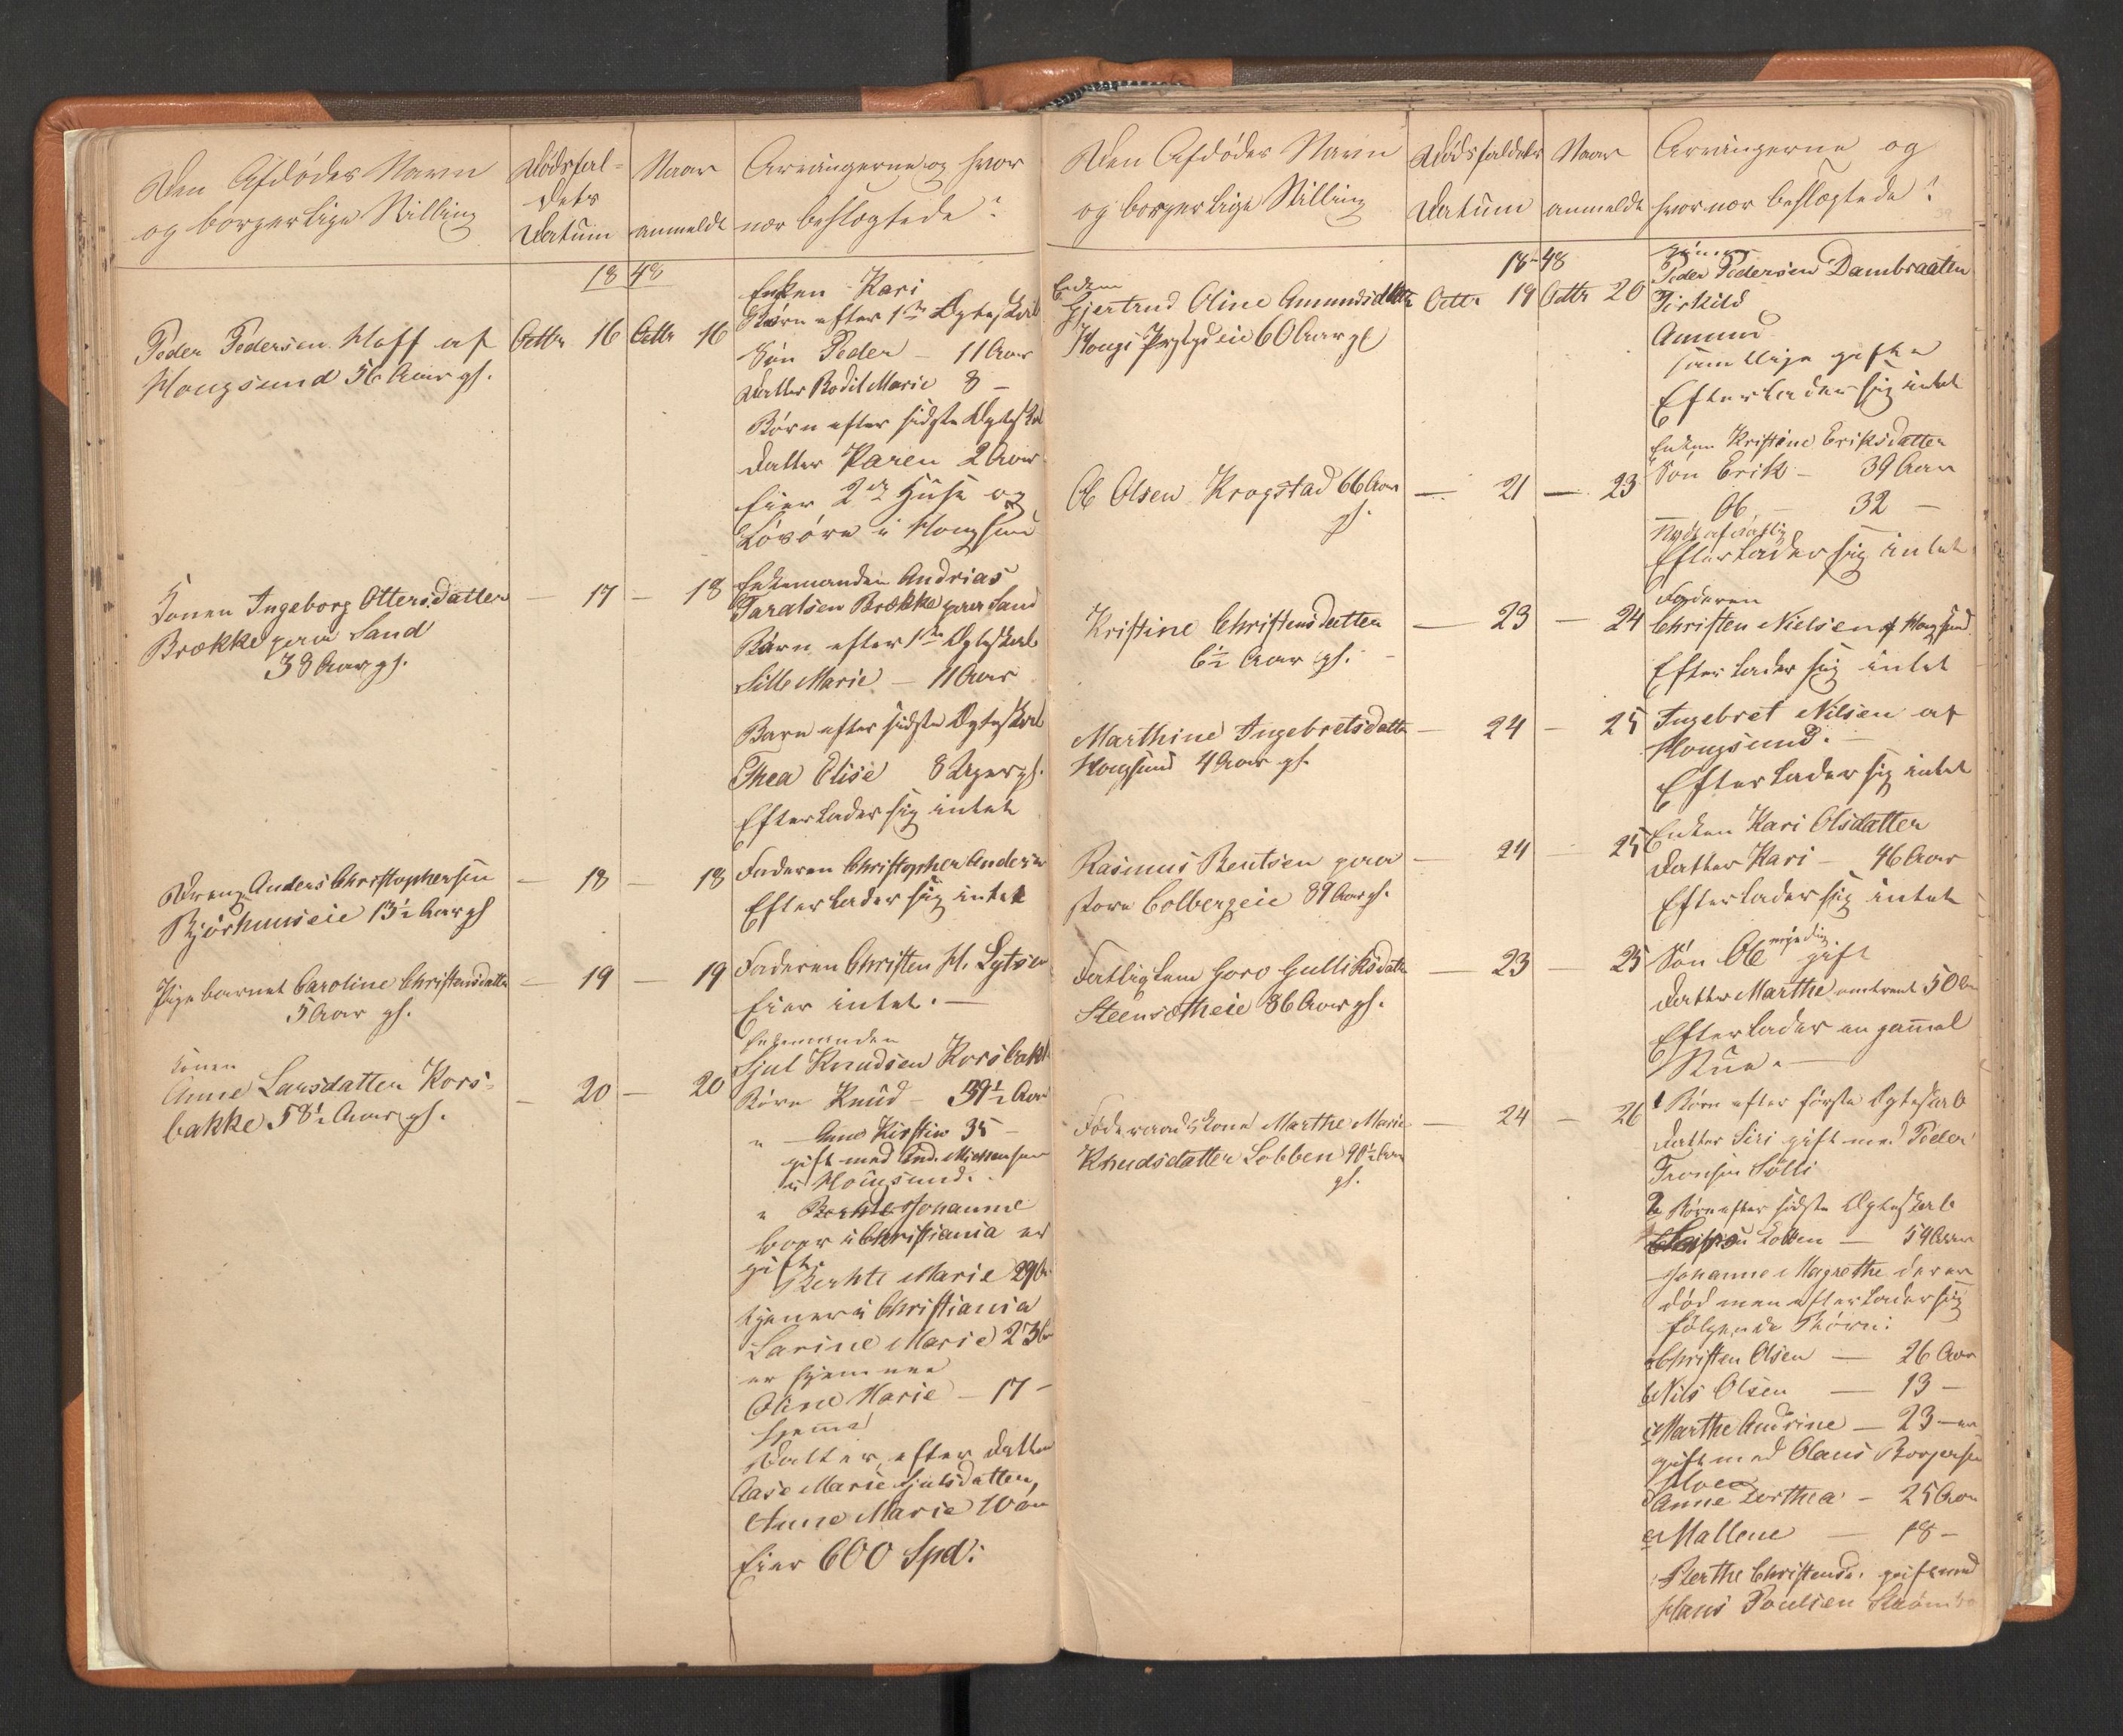 Den Afdødes Navn
og borgerlige Stilling
Dødsfal-
dets
Datum
Naar
anmeldt
Arvingerne og hvor
nær beslægtede?
1848
Peder Pedersen Hoff af
Hougsund 56 Aar gl.
Octbr 16
Octbr 16
Enken Kari
Børn efter 1ste Ægteskab
Søn Peder – 11 Aar
Datter Bodil Marie 8 –
Børn efter sidste Ægteskab
Datter Karen 2 Aar
Eier 2de Huse og
Løsøre i Hougsund
Konen Ingeborg Ottersdatter
Brække paa Sand
38 Aar gl.
– 17
– 18
Enkemanden Andrias
Taralsen Brække paa Sand
Barn efter 1ste Ægteskab
Sille Marie – 11 Aar
Barn efter sidste Ægteskab
Thea Elise 8 Uger gl.
Efterlader sig intet
Dreng Anders Christophersen
Bjørhuuseie 13½ Aar gl
– 18
– 18
Faderen Christopher Andersen
Efterlader sig intet
Pigebarnet Caroline Christensdatter
5 Aar gl.
– 19
– 19
Faderen Christen H. Lytsen
Eier intet. –
Konen
Anne Larsdatter Kors-
bakke 58½ Aar gl.
– 20
– 20
Enkemanden
Hjul Knudsen Korsbakke
Børn Knud – 39½ Aar
" – Anne Kirstin 35 –
gift med And. Mickensen
i Hougsund.
" Berthe Johanne
boer i Christiania er
gift.
Berthe Marie 29 Aar
tjener i Christiania
Larine Marie 23 Aar
er hjemme
Oline Marie – 17 –
hjemme
Datter efter Datter
Aase Marie Hjulsdatter,
Anne Marie 10 Aar
Eier 600 Spd:
Den Afdødes Navn
og borgerlige Stilling
Dødsfaldets
Datum
Naar
anmeldt
Arvingerne og
hvor nær beslægtede?
39
18–48
Enken
Gjertrud Oline Amundsdatter
60 Aar gl
Octbr 19
Octbr 20
Sønner
Peder Pedersen Dambraaten
Torkild
Amund
samtlige gifte
Efterlader sig intet
Ole Olsen Krogstad 66 Aar
gl.
– 21
– 23
Enken Kristine Eriksdatter
Søn Erik – 39 Aar
– Ole – 32 –
Efterlader sig intet
Kristine Christensdatter
6½ Aar gl. –
– 23
– 24
Faderen
Christen Nielsen af Hougsund
Efterlader sig intet
Marthine Ingebretsdatter
Hougsund 4 Aar gl.
– 24
– 25
Ingebret Nilsen af
Hougsund. –
Efterlader sig intet
Rasmus Bentsen paa
store Colbergeie 89 Aar gl.
– 24
– 25
Enken Kari Olsdatter
Datter Kari – 46 Aar
Efterlader sig intet
Fattiglem Goro Gulliksdatter
Steensetheie 86 Aar gl.
– 23
– 25
Søn Ole myndig gift
Datter Marthe omtrent 50 Aar
Efterlader en gammel
Stue. –
Føderaadskone Marthe Marie
Knudsdatter Lobben 90½ Aar
gl.
– 24
– 26
1 Børn efter første Ægteskab
Datter Siri gift med Peder
Tronsen Sølli
2 Børn efter sidste Ægteskab
Lobben – 59 Aar
Johanne Magrethe der er
død men efterlader sig
følgende Børn:
a Christen Olsen – 26 Aar
b Nils Olsen – 13 –
c Marthe Andrine – 23 – er
gift med Olaus Borgersen
Hoen
d Anne Dorthea – 25 Aar
e Mallene – 18 –
Berthe Christensd. gift med
Hans Poulsen